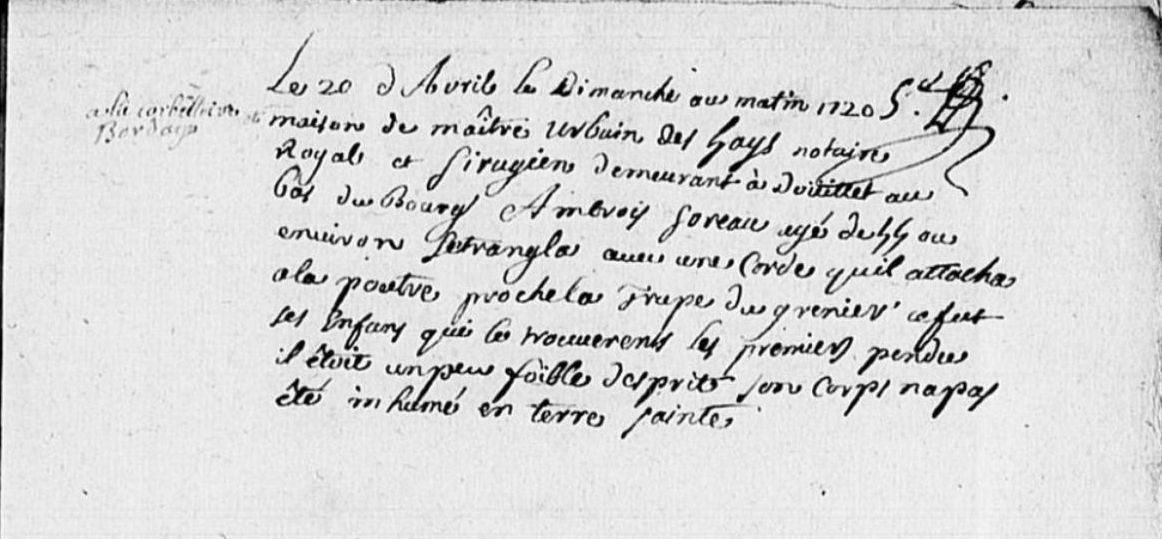 Le 20 d Avril le Dimanche au matin 1720
a la
maison de maître Urbain des hays notaire
Royal et Sirugien demeurant à douillet au
bas du Bourg Ambrois soreau agé de 55 ou
environ setrangla avec une Corde quil attacha
a la poutre proche la Trape du grenier ce fut
ses Enfans qui le trouverent les premiers pendu
il étoit un peu foible desprit son corps na pas
été inhumé en terre sainte